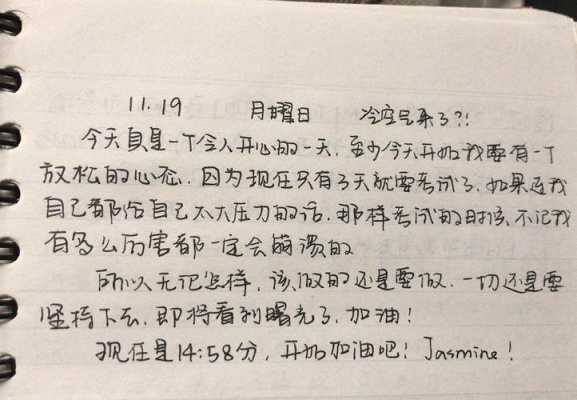 11.19 月曜日 冷空气来了?!
今天真是一个令人开心的一天，至少今天开始我要有一个
放松的心态．因为现在只有3天就要考试了，如果连我
自己都给自己太大压力的话．那样考试的时候，不论我
有多么厉害都一定会崩溃的
所以无论怎样，该做的还是要做．一切还是要
坚持下去，即将看到曙光了，加油！
现在是14:58分，开始加油吧！Jasmine！